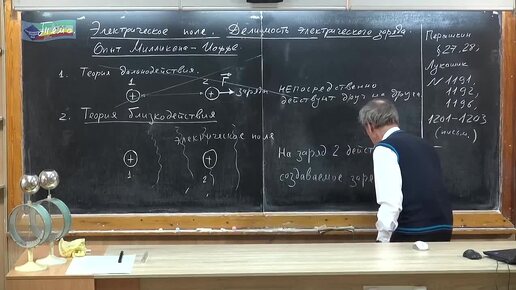 Электрическое поле. Делимость электрического заряда.
Опыт Милликена-Иоффе.
1. Теория дальнодействия.
1
2
F
+
+
заряды
непосредственно
действуют друг на друга
2. Теория близкодействия
электрическое поле
+
+
1
2
На заряд 2 дейст
создаваемое заря
Перышкин
§27, 28,
Лукашик
N 1191,
1192,
1196,
1201-1203
(письм.)